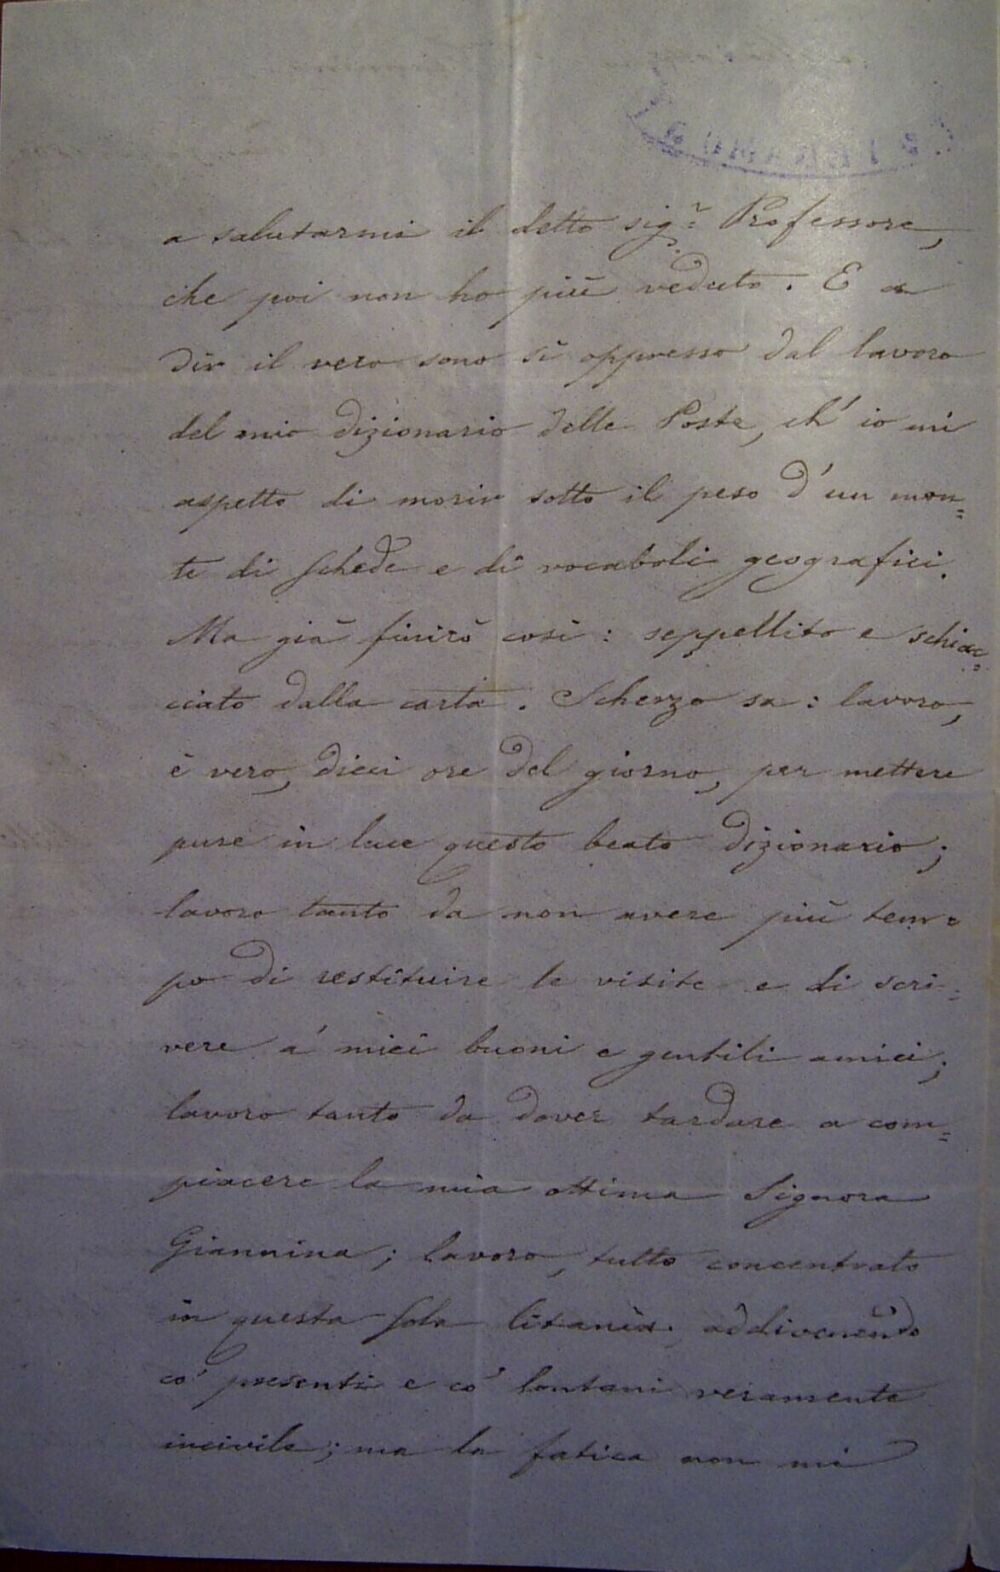 a salutarmi il detto sig.r Professore,
che poi non ho più veduto. E a
dir il vero sono sì oppresso dal lavoro
del mio dizionario delle Poste, ch' io mi
aspetto di morir sotto il peso d' un mon=
te di schede e di vocaboli geografici.
Ma già finirò così: seppellito e schiac=
ciato dalla carta. Scherzo sa: lavoro,
è vero, dieci ore del giorno, per mettere
pure in luce questo beato dizionario;
lavoro tanto da non avere più tem=
po di restituire le visite e di scri=
vere a' miei buoni e gentili amici;
lavoro tanto da dover tardare a com=
piacere la mia ottima Signora
Giannina; lavoro, tutto concentrato
in questa sola litania, addivenendo
co' presenti e co' lontani veramente
incivile; ma la fatica non mi